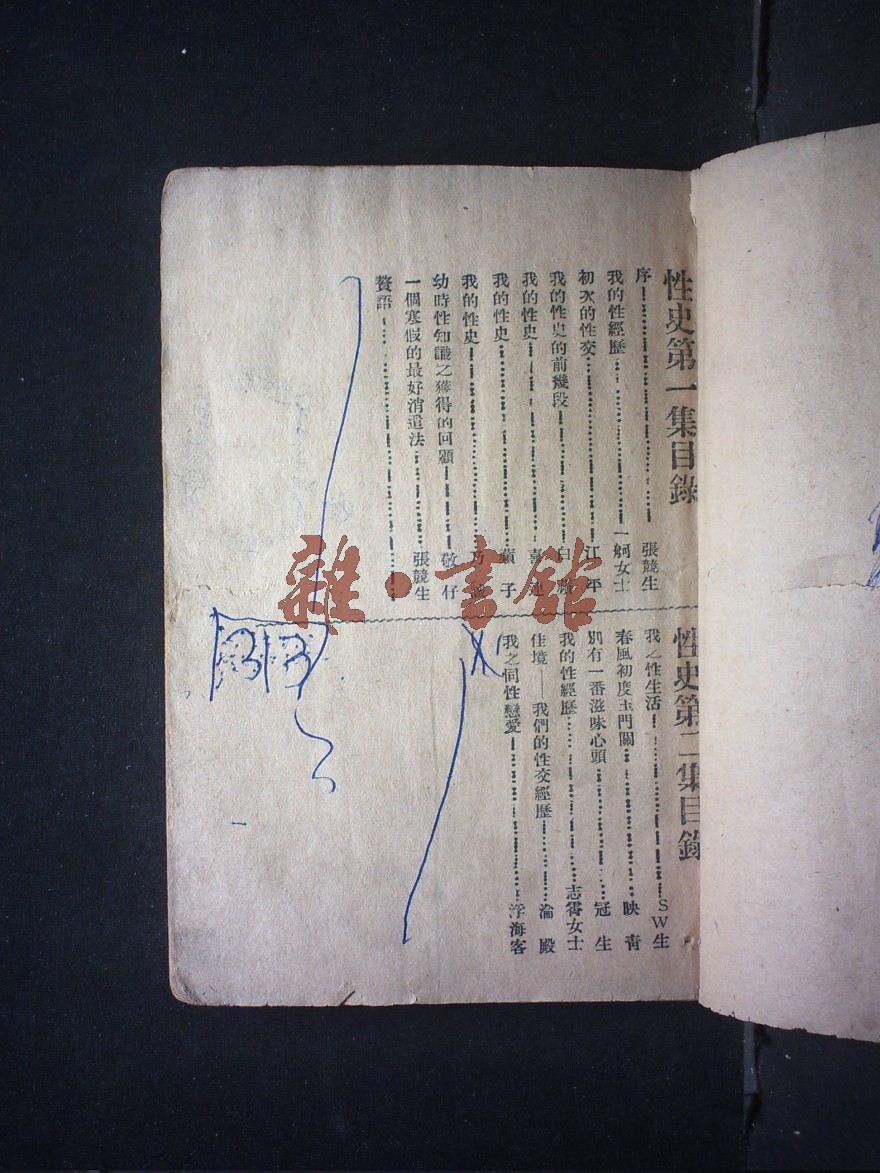 性史第一集目錄
序 張競生
我的性經歷 一舸女士
初次的性交 江平
我的性史的前幾段 白
我的性史 喜連
我的性史 蘋子
我的性史 乃
幼時性知識之獲得的回顧 敬仔
一個寒假的最好消遣法 張競生
贅語
性史第二集目錄
我之性生活 SW生
春風初度玉門關 映青
別有一番滋味心頭 冠生
我的性經歷 志霄女士
佳境——我們的性交經歷 淪殿
我之同性戀愛 浮海客
雜·書館